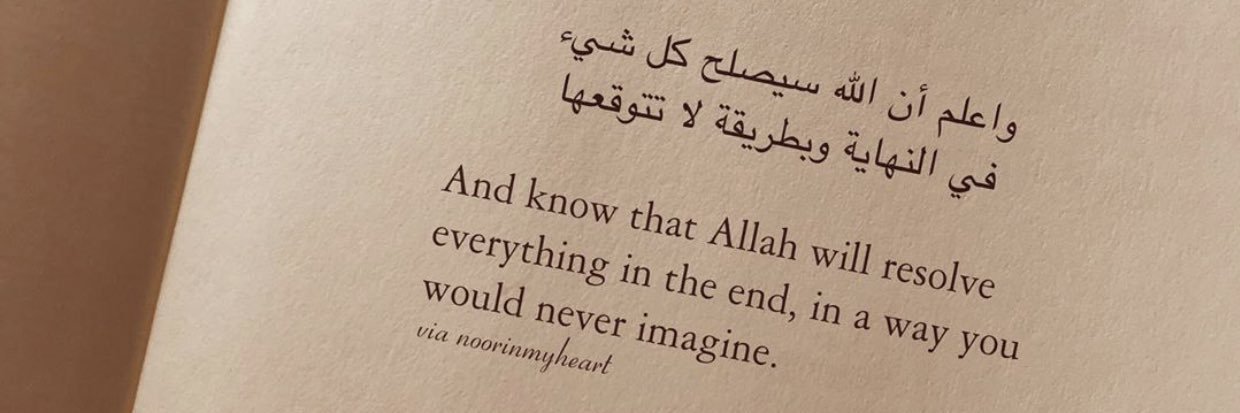 واعلم أن الله سيصلح كل شيء
في النهاية وبطريقة لا تتوقعها
And know that Allah will resolve
everything in the end, in a way you
would never imagine.
via noorinmyheart